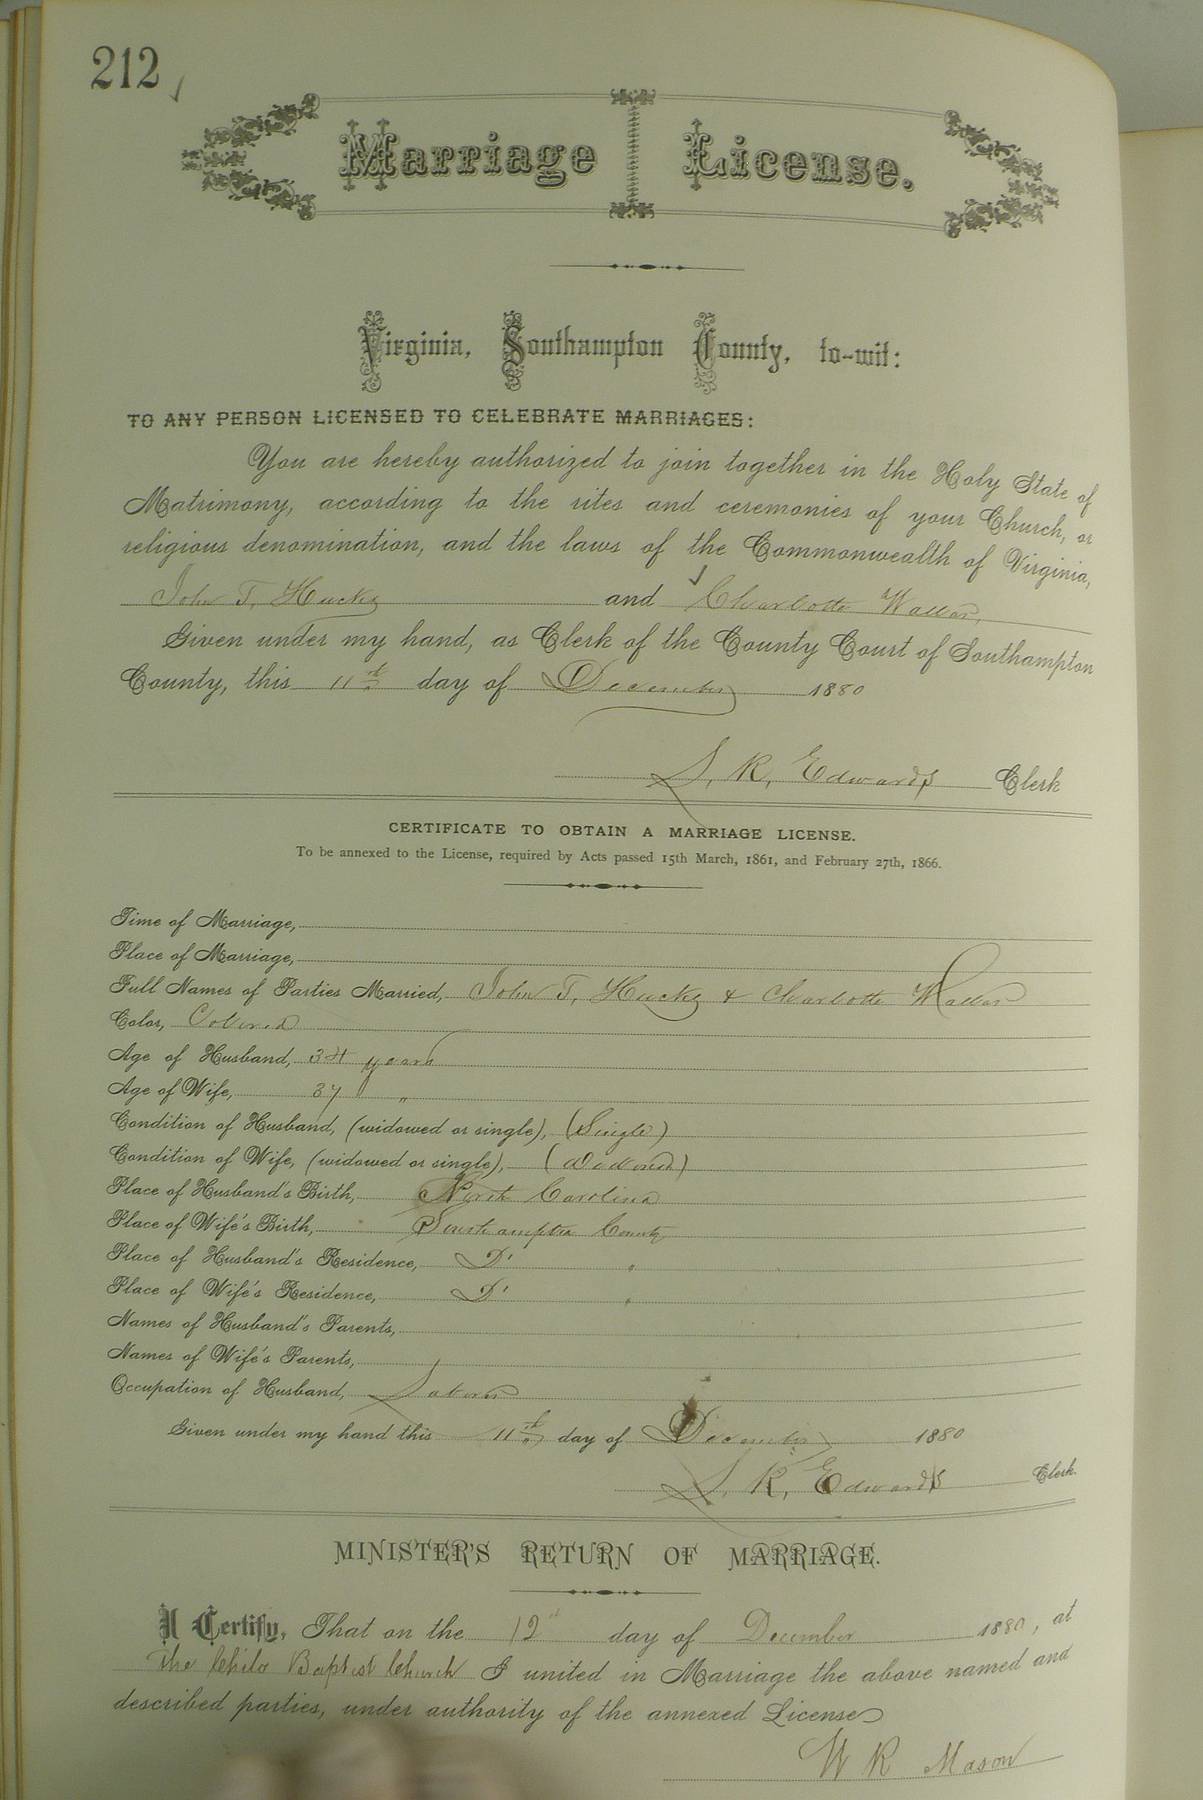 212
Marriage License.
Virginia, Southampton County, to-wit:
TO ANY PERSON LICENSED TO CELEBRATE MARRIAGES:
You are hereby authorized to join together in the Holy State of
Matrimony, according to the rites and ceremonies of your Church, or
religious denomination, and the laws of the Commonwealth of Virginia,
John T, and Charlotte
Given under my hand, as Clerk of the County Court of Southampton
County, this 11th day of December 1880
S, R, Edwards Clerk
CERTIFICATE TO OBTAIN A MARRIAGE LICENSE.
To be annexed to the License, required by Acts passed 15th March, 1861, and February 27th, 1866.
Time of Marriage,
Place of Marriage,
Full Names of Parties Married, John T, & Charlotte
Color, Colored
Age of Husband, 34 years
Age of Wife, 37 "
Condition of Husband, (widowed or single), (Single)
Condition of Wife, (widowed or single), (Widowed)
Place of Husband's Birth, North Carolina
Place of Wife's Birth, Southampton County
Place of Husband's Residence, Do "
Place of Wife's Residence, Do "
Names of Husband's Parents,
Names of Wife's Parents,
Occupation of Husband, Laborer
Given under my hand this 11th day of December 1880
S, R, Edwards Clerk.
MINISTER'S RETURN OF MARRIAGE.
I Certify, That on the 12 day of December 1880, at
The Baptist Church I united in Marriage the above named and
described parties, under authority of the annexed License
W R Mason